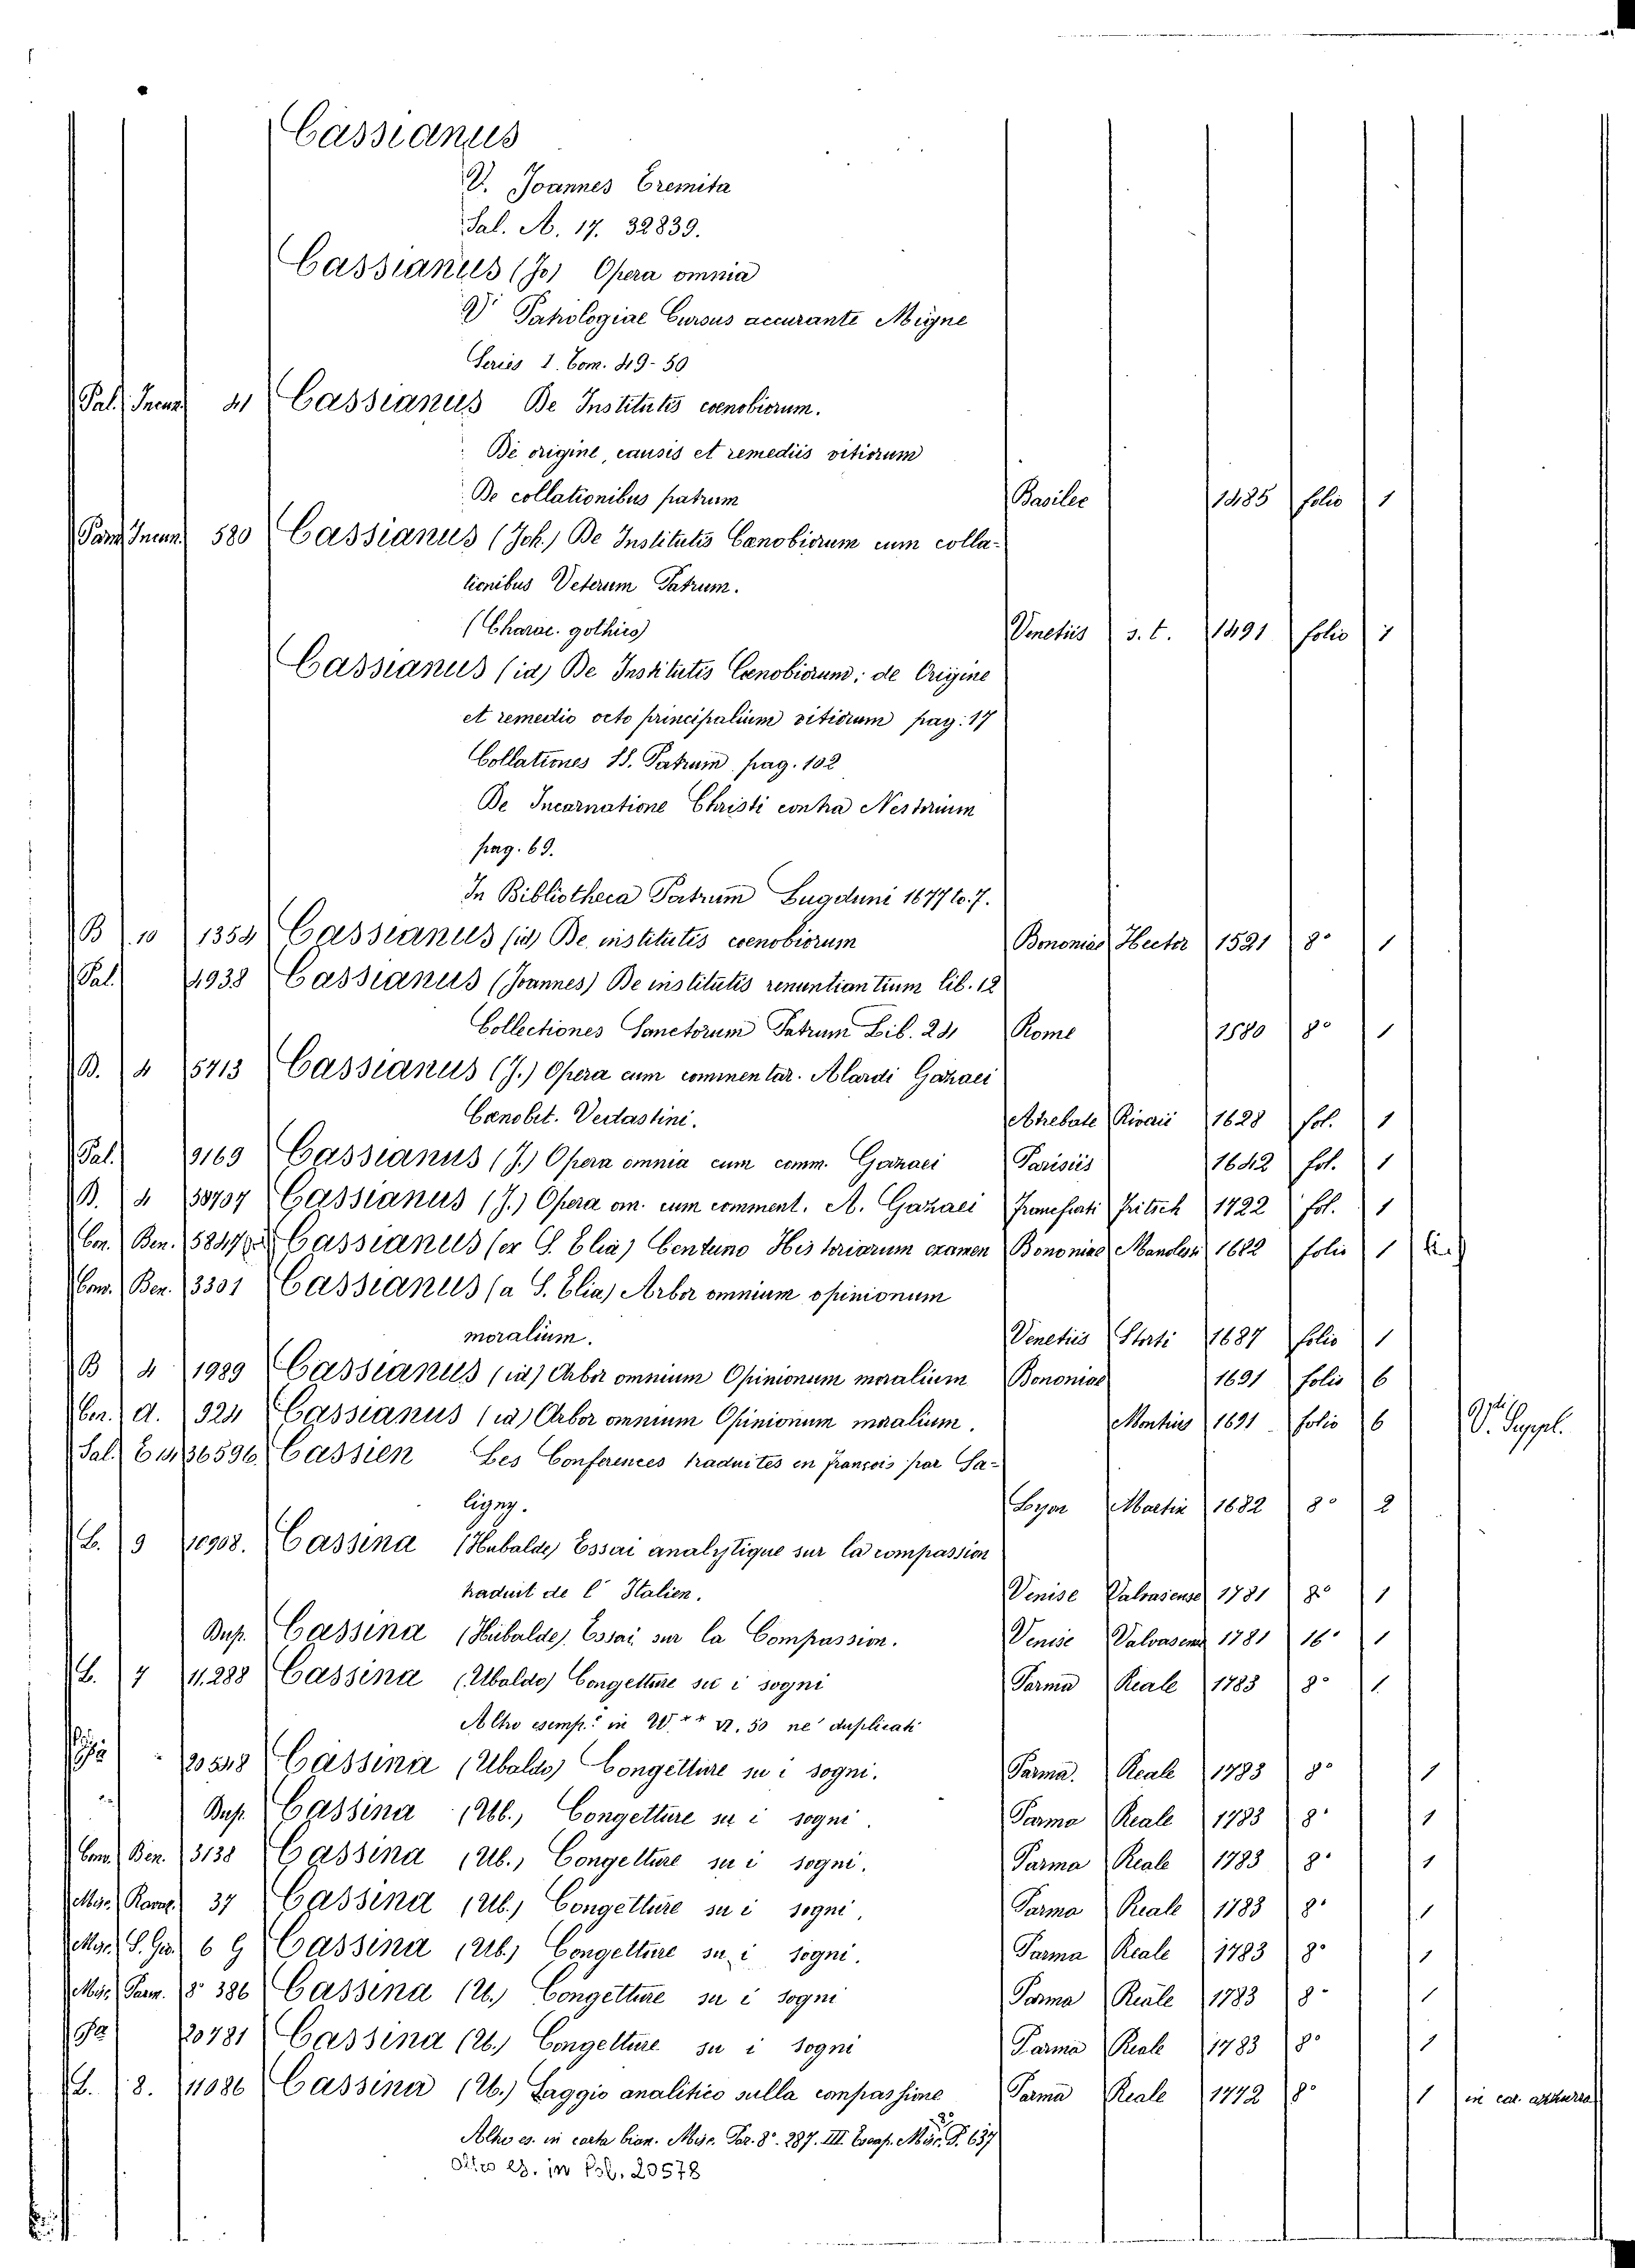 Cassianus
V. Joannes Eremita
Sal. A. 17. 32839.
Cassianus (Jo) Opera omnia
V Patrologiae Cursus accurante Migne
Series 1. Tom. 49-50
Pal. Incun. 41 Cassianus De Institutis coenobiorum.
De origine, causis et remediis vitiorum
De collationibus patrum Basilee 1485 folio 1
Parm Incun. 580 Cassianus (Joh.) De Institutis Cœnobiorum cum colla-
tionibus Veterum Patrum.
(Charac. gothico) Venetiis s. t. 1491 folio 1
Cassianus (id) De Institutis Cœnobiorum; de Origine
et remedio octo principalium vitiorum pag. 17
Collationes SS. Patrum pag. 102
De Incarnatione Christi contra Nestorium
pag. 69.
In Bibliotheca Patrum Lugduni 1677 to. 7.
B 10 1354 Cassianus (id) De institutis coenobiorum Bononiae Hector 1521 8° 1
Pal. 4938 Cassianus (Joannes) De institutis renuntiantium lib. 12
Collectiones Sanctorum Patrum Lib. 24 Rome 1580 8° 1
B. 4 5713 Cassianus (J.) Opera cum commentar. Alardi Gazaei
Cœnobit. Vedastini. Atrebate Riverii 1628 fol. 1
Pal. 9169 Cassianus (J.) Opera omnia cum comm. Gazaei Parisiis 1642 fol. 1
B. 4 38707 Cassianus (J.) Opera om. cum comment. A. Gazaei Francfurti Fritsch 1722 fol. 1
Con. Ben. 5847 Cassianus (ex S. Elia) Centuno Historiarum examen Bononiae Manolessi 1682 folio 1
Con. Ben. 3301 Cassianus (a S. Elia) Arbor omnium opinionum
moralium. Venetiis Storti 1687 folio 1
B 4 1989 Cassianus (id) Arbor omnium Opinionum moralium Bononiae 1691 folio 6
Con. d. 324 Cassianus (id) Arbor omnium Opinionum moralium. Montius 1691 folio 6 V. Suppl.
Sal. E 14 36596. Cassien Les Conferences traduites en françois par Sa-
ligny. Lyon Martin 1682 8° 2
L. 9 10908. Cassina (Hubalde) Essai analytique sur la compassion
traduit de l' Italien. Venise Valvasense 1781 8° 1
Dup. Cassina (Hubalde) Essai sur la Compassion. Venise Valvasense 1781 16° 1
L. 7 11.288 Cassina (Ubaldo) Congetture su i sogni Parma Reale 1783 8° 1
Altro esemp.e in W.** 17. 50 ne' duplicati
20548 Cassina (Ubaldo) Congetture su i sogni. Parma. Reale 1783 8° 1
Dup. Cassina (Ub.) Congetture su i sogni. Parma Reale 1783 8° 1
Con. Ben. 3138 Cassina (Ub.) Congetture su i sogni. Parma Reale 1783 8° 1
Misc. Ravag. 37 Cassina (Ub.) Congetture su i sogni. Parma Reale 1783 8° 1
Misc. S. Gio. 6 G Cassina (Ub.) Congetture su i sogni. Parma Reale 1783 8° 1
Misc. Parm. 8° 386 Cassina (U.) Congetture su i sogni Parma Reale 1783 8° 1
Pa 20781 Cassina (U.) Congetture su i sogni Parma Reale 1783 8° 1
L. 8. 11086 Cassina (U.) Saggio analitico sulla compassione Parma Reale 1772 8° 1 in car. azzurra
Altro es. in carta bian. Misc. Par. 8°. 287. III. Eseap. Misc. P. 637
Altro es. in Pal. 20578